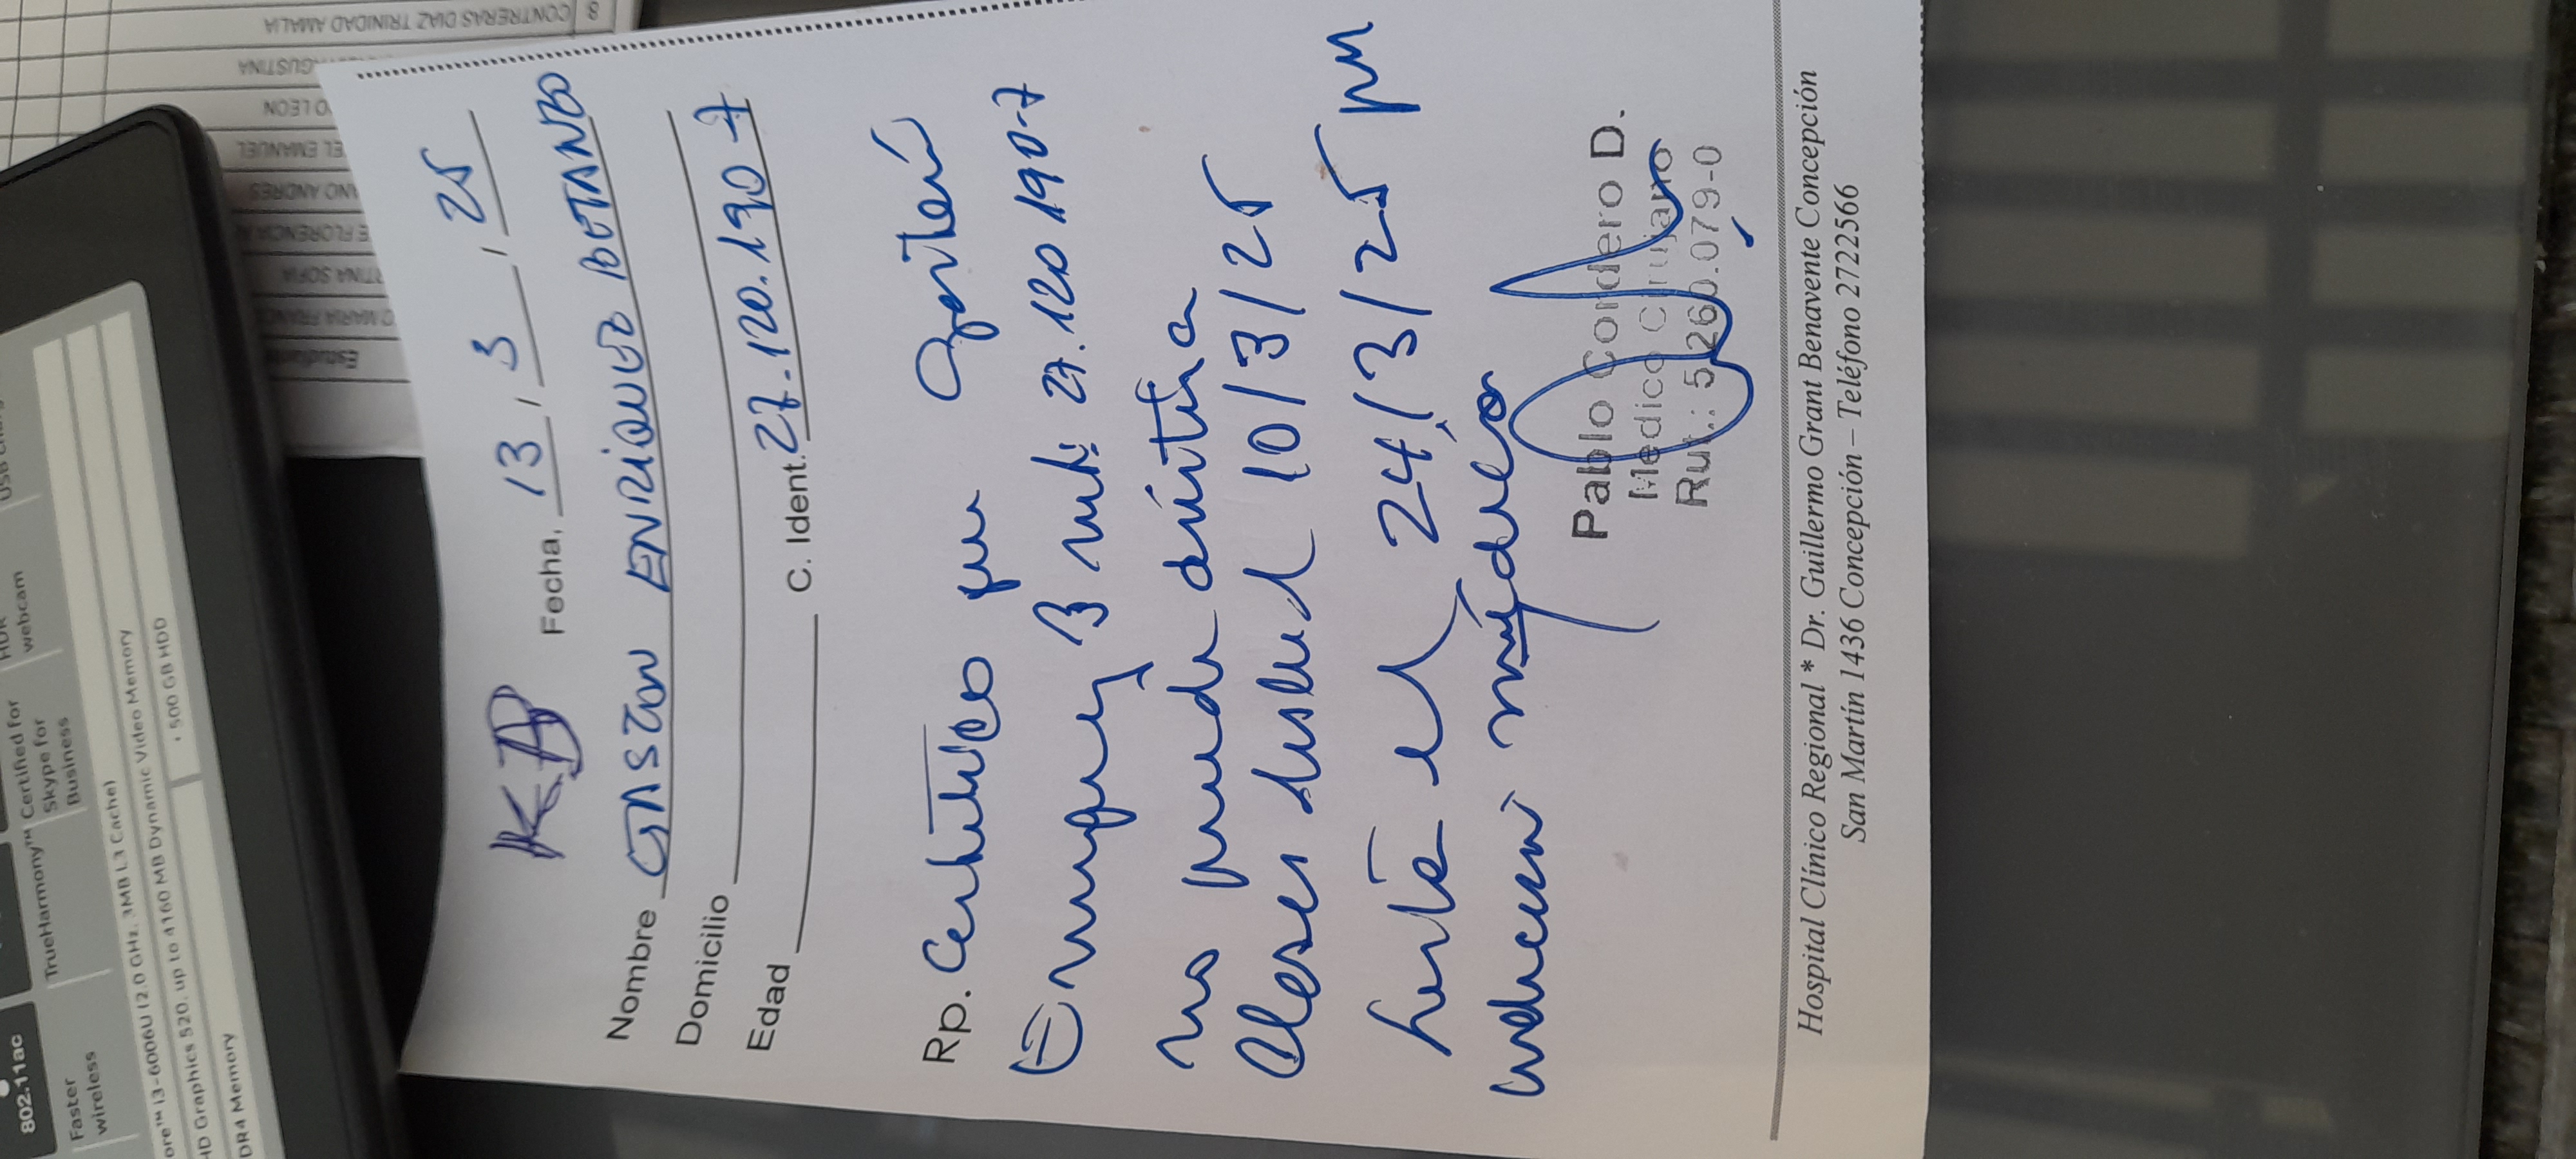 KD
Fecha, 13, 3, 25
Nombre GASTON ENRIQUEZ BETANZO
Domicilio
Edad C. Ident. 27.120.190-7
Rp. Certifico que Gastón
Enriquez B rut: 27.120 190-7
no puede asistir a
clases desde el 10/3/25
hasta el 24/3/25 por
indicación médica
Pablo Cordero D.
Medico Cirujano
Rut.: 5.260.079-0
Hospital Clínico Regional * Dr. Guillermo Grant Benavente Concepción
San Martín 1436 Concepción – Teléfono 2722566
802.11ac
Faster
wireless
TrueHarmony™
Certified for
Skype for
Business
HDR
webcam
ore™ i3-6006U (2.0 GHz, 3MB L3 Cache)
HD Graphics 520, up to 4160 MB Dynamic Video Memory
DR4 Memory
• 500 GB HDD
8 CONTRERAS DIAZ TRINIDAD AMALIA
AGUSTINA
O LEON
EL EMANUEL
ANO ANDRES
E FLORENCIA
TINA SOFIA
MARIA FRANC
Estudiante